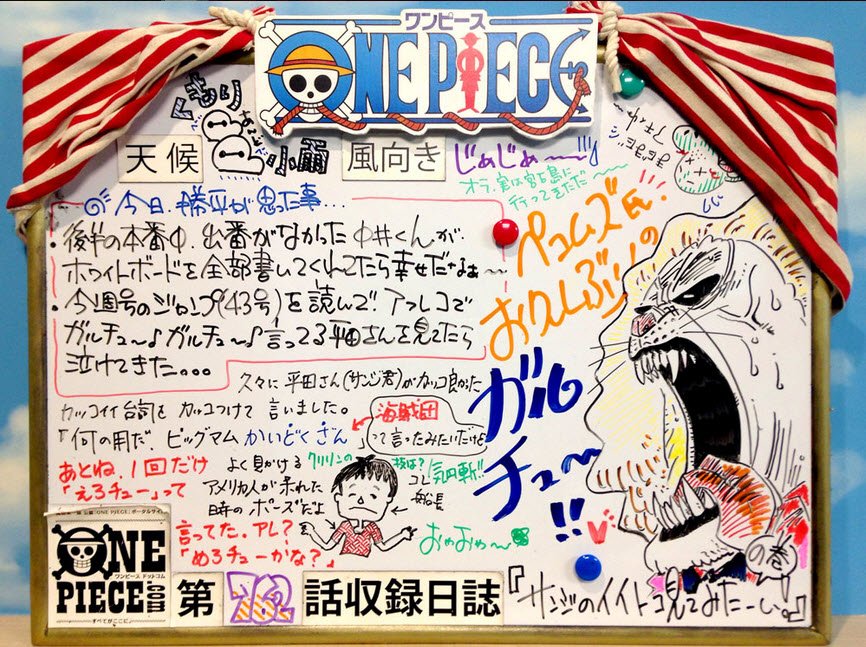 ワンピース
ONE PIECE
くもり
天候
小雨
風向き
じぁじぁ〜
オラ、実は宮古島に
行ってきただ〜
今日、勝平が思った事…
・後半の本番中、出番がなかった中井くんが
ホワイトボードを全部書いてくれてたら幸せだなぁ〜
・今週号のジャンプ(43号)を読んで!アフレコで
ガルチュ〜♪ガルチュ〜♪言ってる平田さんを見てたら
泣けてきた。。。
ペコムズ氏、
おひさしぶりの
ガル
チュ〜
!!
久々に平田さん(サンジ君)がカッコ良かった
カッコイイ台詞をカッコつけて言いました。
「何の用だ、ビッグマムかいどくさん」
海賊団
って言ったみたいだけど
あとね、1回だけ
「えろチュー」って
言ってた。アレ?
「めろチューかな?」
よく見かける
アメリカ人が呆れた
時のポーズだよ
クリリンの
技は?
コレ
気円斬!!
船長
おぉおぉ〜
ONE
PIECE
.com
ワンピース ドットコム
すべてがここに
第 712 話収録日誌
『サンジのイイトコ見てみたーい。』
の巻